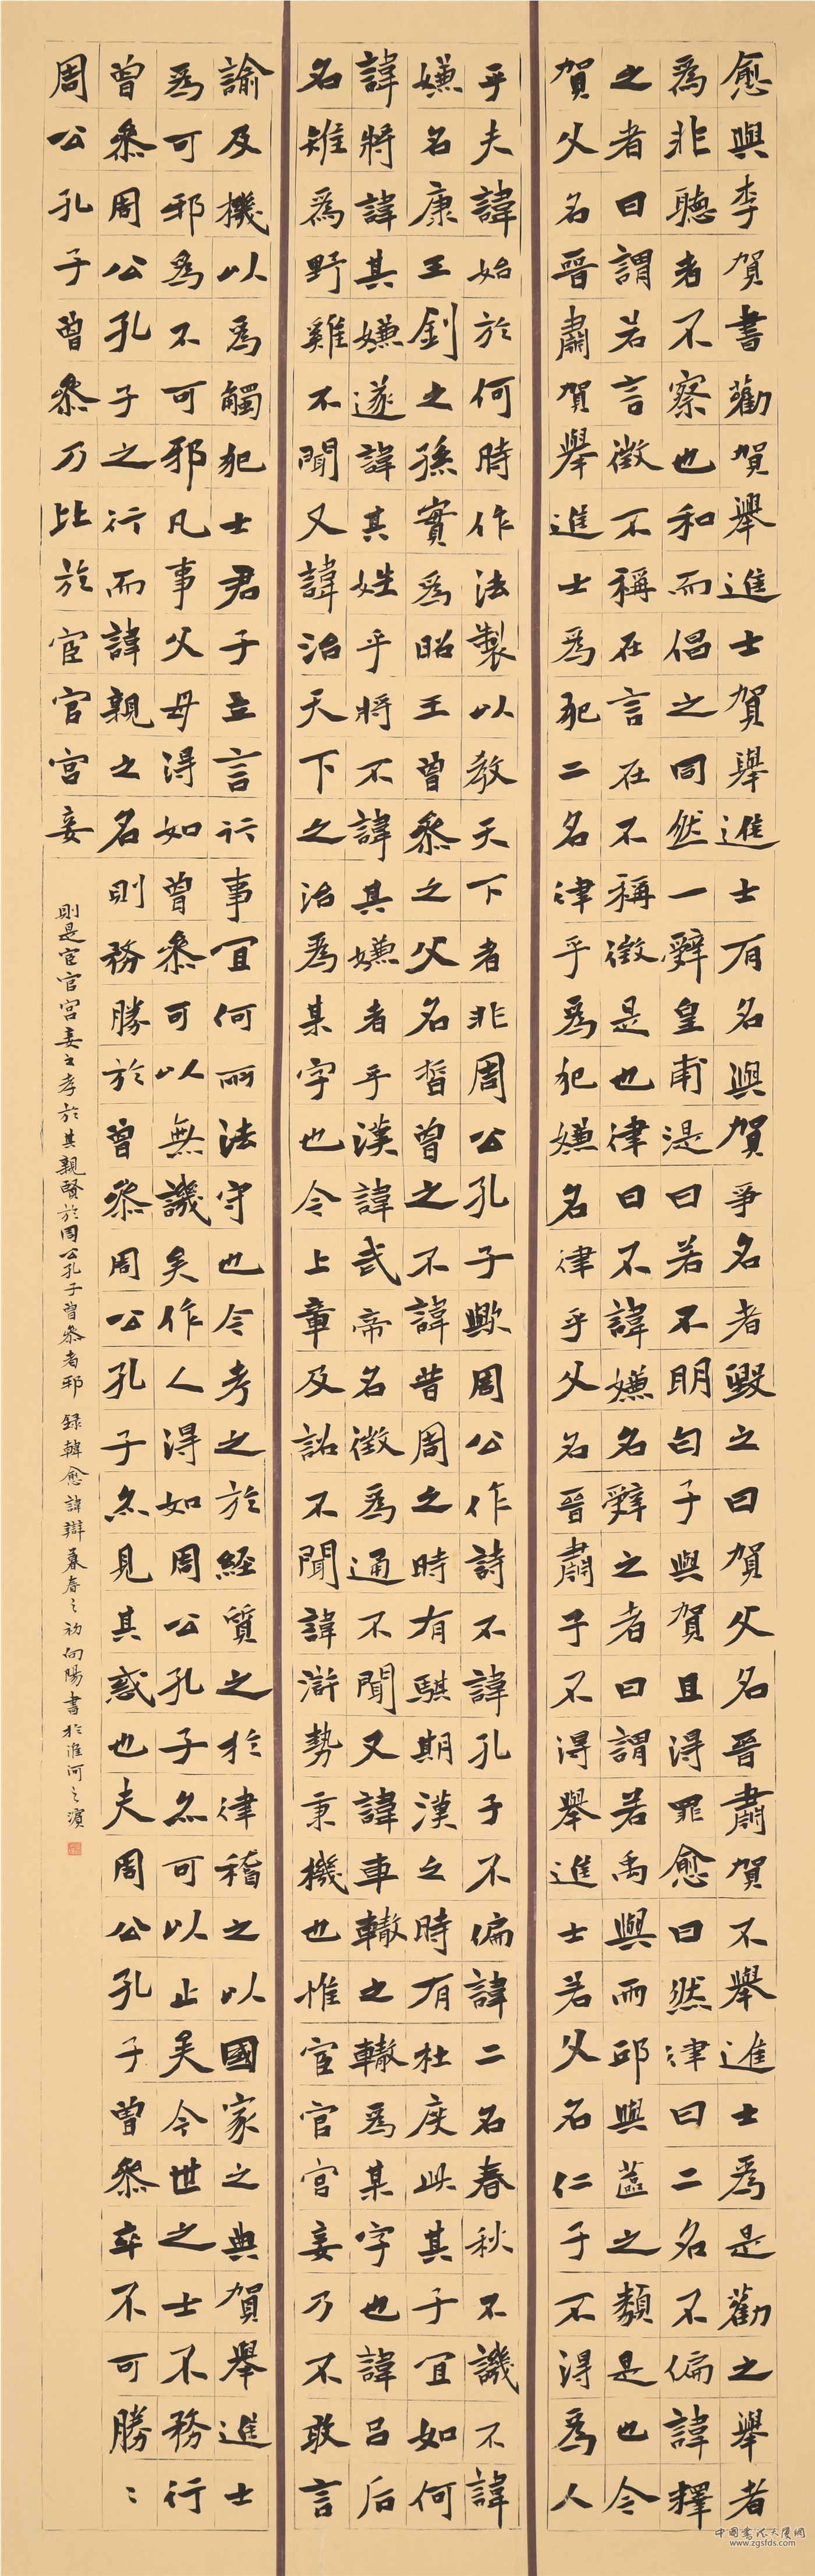 愈與李賀書勸賀舉進士賀舉進士有名與賀爭名者毀之曰賀父名晉肅賀不舉進士爲是勸之舉者
爲非聽者不察也和而倡之同然一辭皇甫湜曰若不明白子與賀且得罪愈曰然律曰二名不偏諱釋
之者曰謂若言徵不稱在言在不稱徵是也律曰不諱嫌名釋之者曰謂若禹與雨邱與蓲之類是也今
賀父名晉肅賀舉進士爲犯二名律乎爲犯嫌名律乎父名晉肅子不得舉進士若父名仁子不得爲人
乎夫諱始於何時作法製以教天下者非周公孔子歟周公作詩不諱孔子不偏諱二名春秋不譏不諱
嫌名康王釗之孫實爲昭王曾參之父名晳曾之不諱昔周之時有騏期漢之時有杜度此其子宜如何
諱將諱其嫌遂諱其姓乎將不諱其嫌者乎漢諱武帝名徹爲通不聞又諱車轍之轍爲某字也諱呂后
名雉爲野雞不聞又諱治天下之治爲某字也今上章及詔不聞諱滸勢秉機也惟宦官宮妾乃不敢言
諭及機以爲觸犯士君子立言行事宜何所法守也今考之於經質之於律稽之以國家之典賀舉進士
爲可邪爲不可邪凡事父母得如曾參可以無譏矣作人得如周公孔子亦可以止矣今世之士不務行
曾參周公孔子之行而諱親之名則務勝於曾參周公孔子亦見其惑也夫周公孔子曾參卒不可勝〻
周公孔子曾參乃比於宦官宮妾
則是宦官宮妾之孝於其親賢於周公孔子曾參者邪 錄韓愈諱辯暮春之初向陽書於淮河之濱
中國書法大廈網
www.zgsfds.com